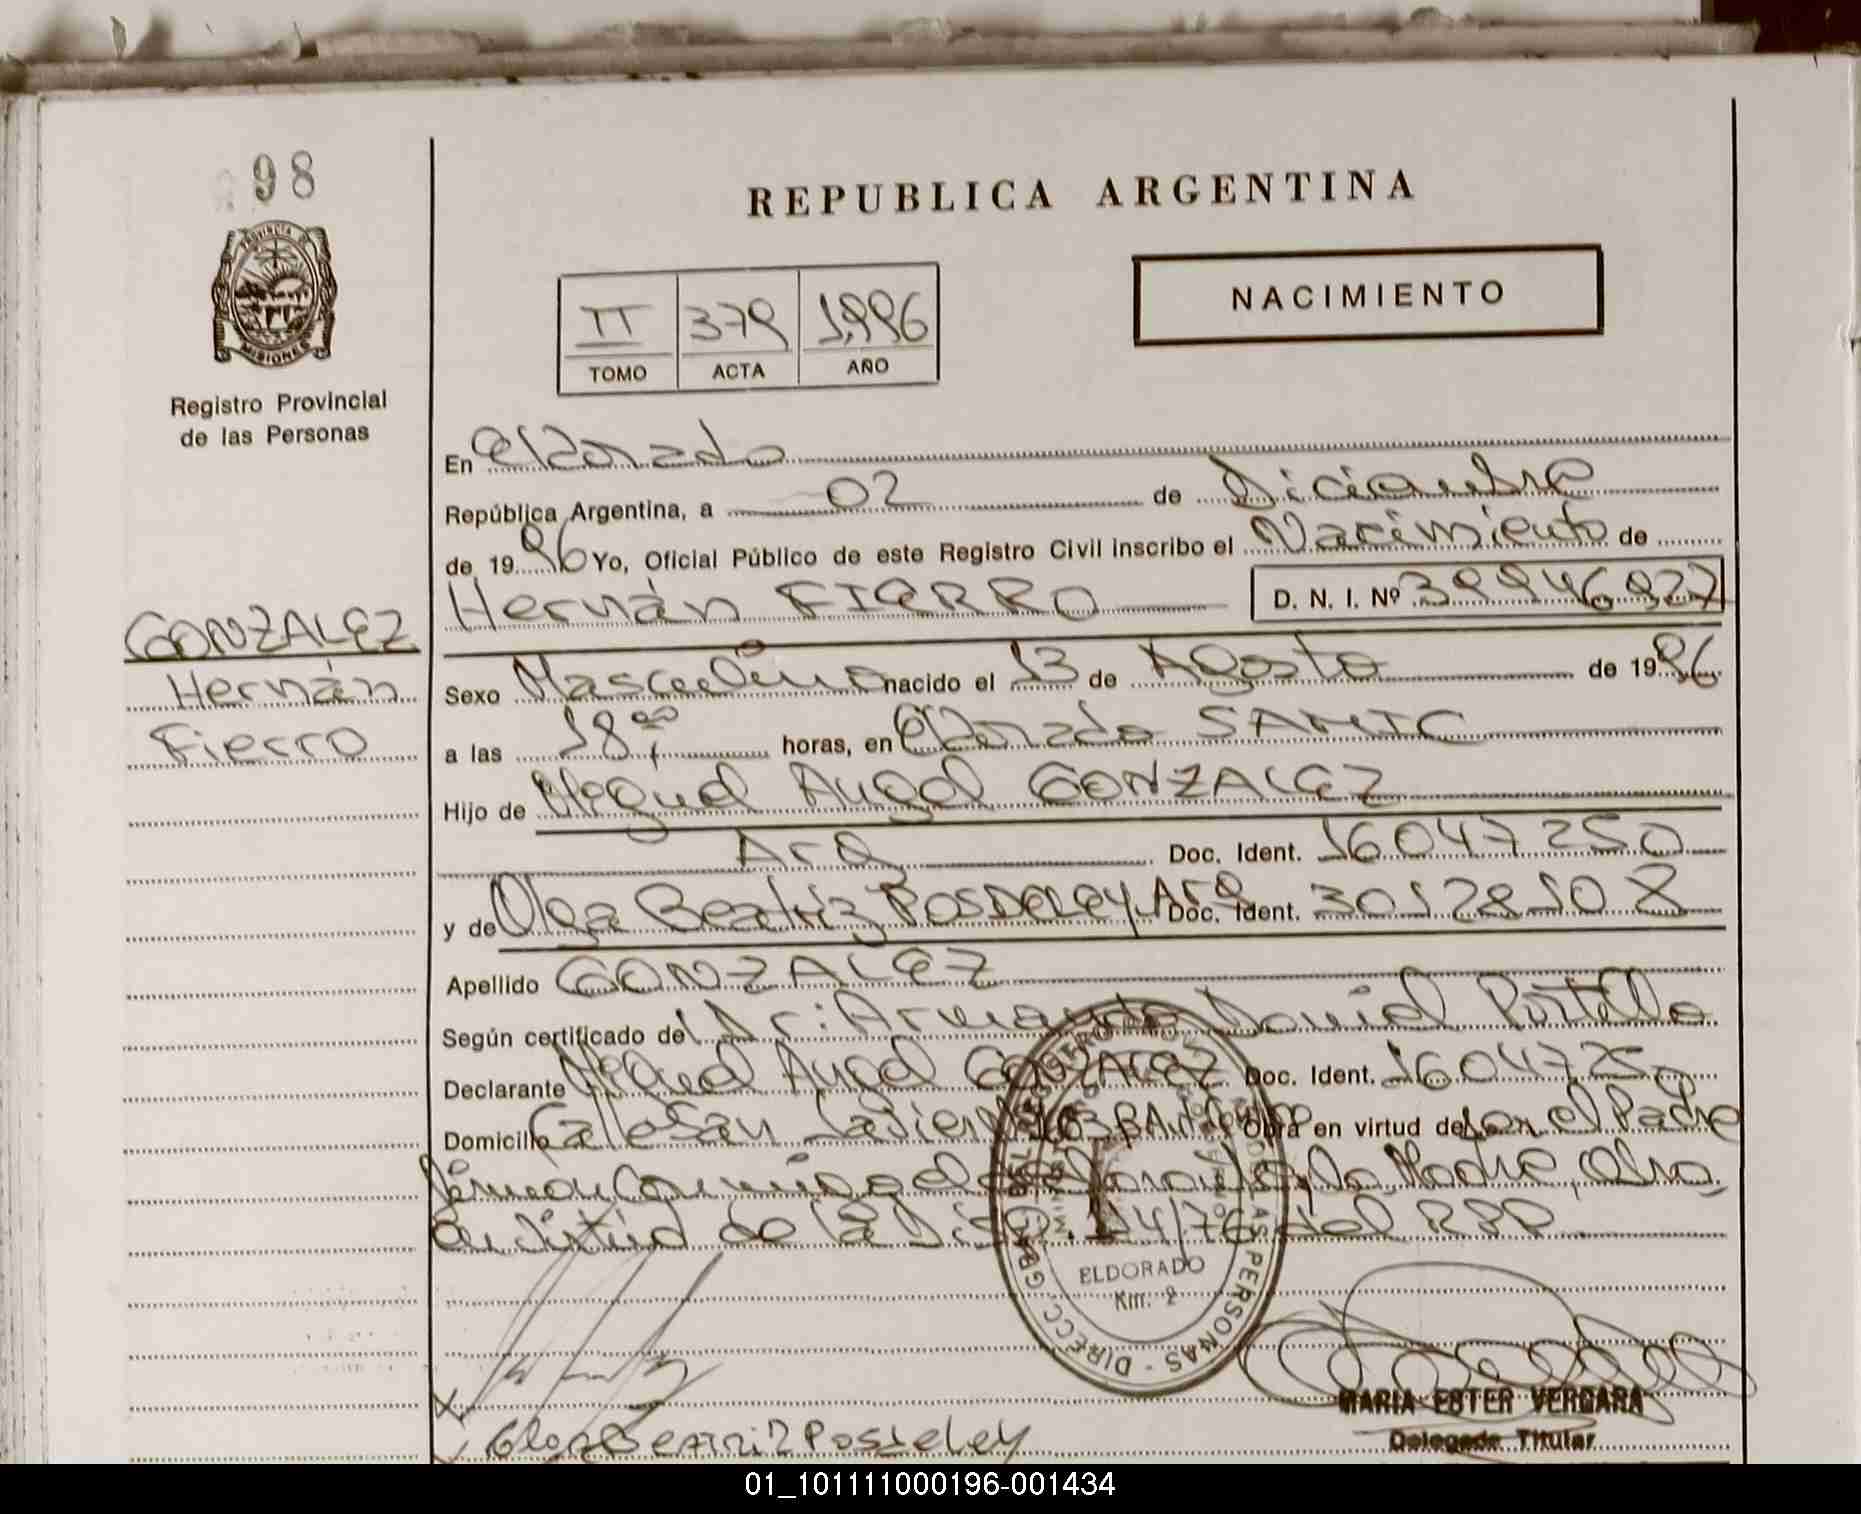 98
REPUBLICA ARGENTINA
NACIMIENTO
II 379 1996
TOMO ACTA AÑO
PROVINCIA DE
MISIONES
Registro Provincial
de las Personas
En Eldorado
República Argentina, a 02 de Diciembre
de 1996 Yo, Oficial Público de este Registro Civil inscribo el Nacimiento de
Hernán FIERRO D. N. I. Nº 39946927
GONZALEZ
Hernán
Fierro
Sexo Masculino nacido el 13 de Agosto de 1996
a las 18 horas, en Eldorado SAMIC
Hijo de Miguel Angel GONZALEZ
Arg Doc. Ident. 16047250
y de Olga Beatriz POSDELEY Arg Doc. Ident. 30128108
Apellido GONZALEZ
Según certificado del Dr: Armando Daniel Portillo
Declarante Miguel Angel GONZALEZ Doc. Ident. 16047250
Domicilio Calle San Javier Nº 163 Obra en virtud de Ser el Padre
la Madre, Obra
en Virtud de la Disp. 114/76 del RPP
ELDORADO
Km. 2
PERSONAS - DIRECC. GRAL. DEL REGISTRO
Olga Beatriz Posseley
MARIA ESTER VERGARA
Delegada Titular
01_101111000196-001434